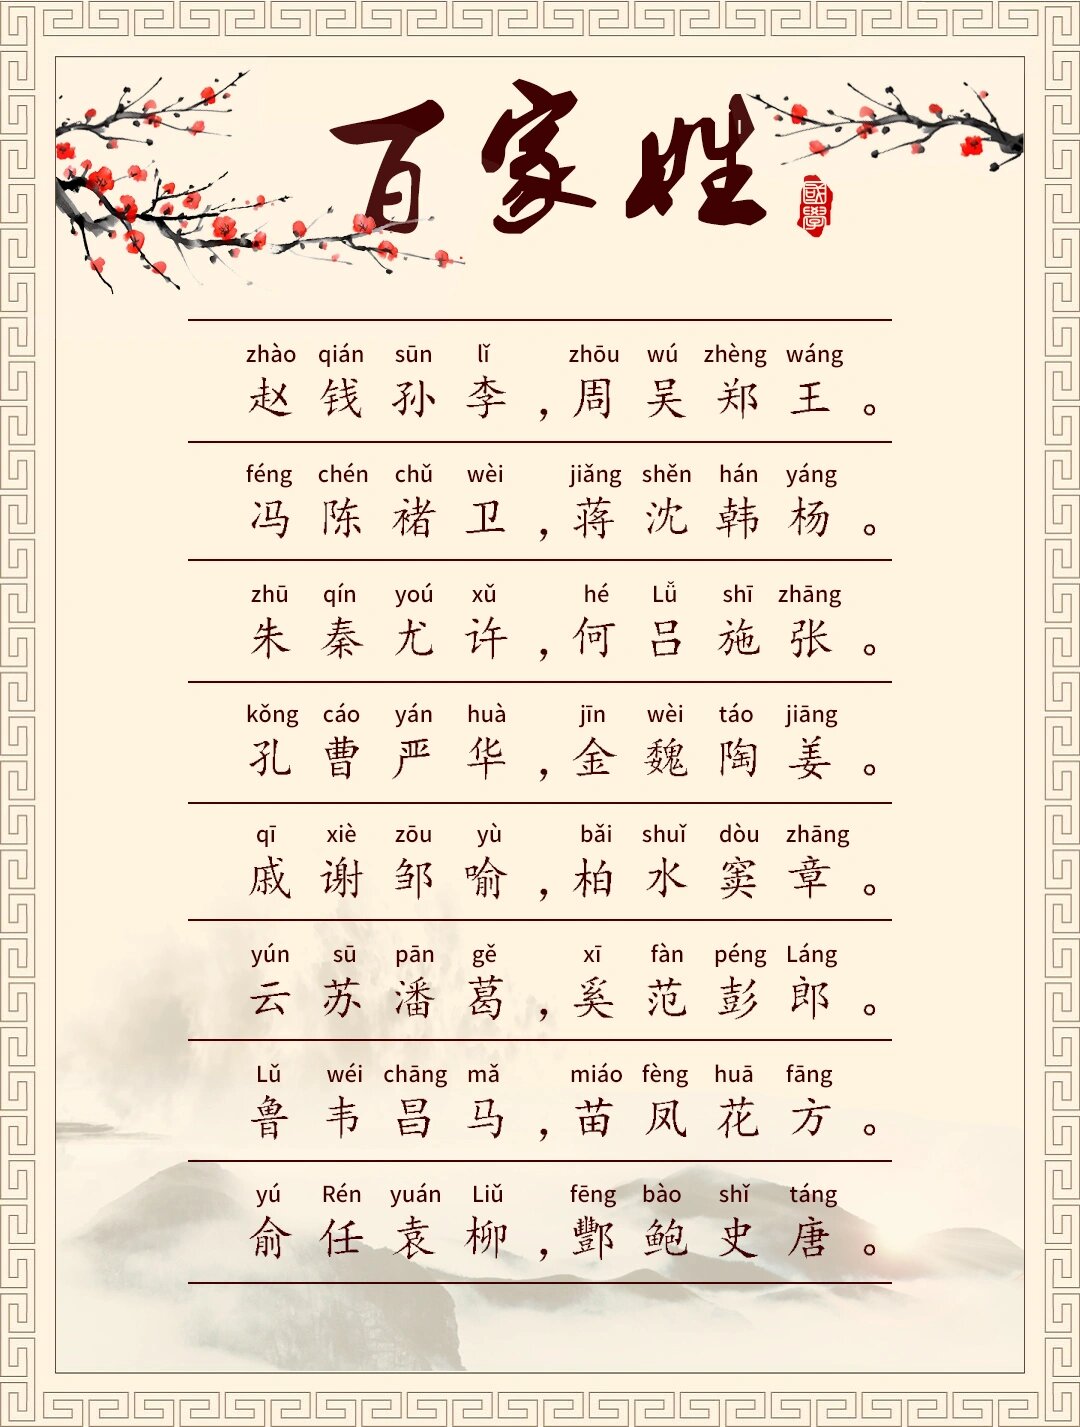 百家姓
國學
zhào qián sūn lǐ zhōu wú zhèng wáng
赵 钱 孙 李 , 周 吴 郑 王 。
féng chén chǔ wèi jiǎng shěn hán yáng
冯 陈 褚 卫 , 蒋 沈 韩 杨 。
zhū qín yoú xǔ hé Lǚ shī zhāng
朱 秦 尤 许 , 何 吕 施 张 。
kǒng cáo yán huà jīn wèi táo jiāng
孔 曹 严 华 , 金 魏 陶 姜 。
qī xiè zōu yù bǎi shuǐ dòu zhāng
戚 谢 邹 喻 , 柏 水 窦 章 。
yún sū pān gě xī fàn péng Láng
云 苏 潘 葛 , 奚 范 彭 郎 。
Lǔ wéi chāng mǎ miáo fèng huā fāng
鲁 韦 昌 马 , 苗 凤 花 方 。
yú Rén yuán Liǔ fēng bào shǐ táng
俞 任 袁 柳 , 酆 鲍 史 唐 。